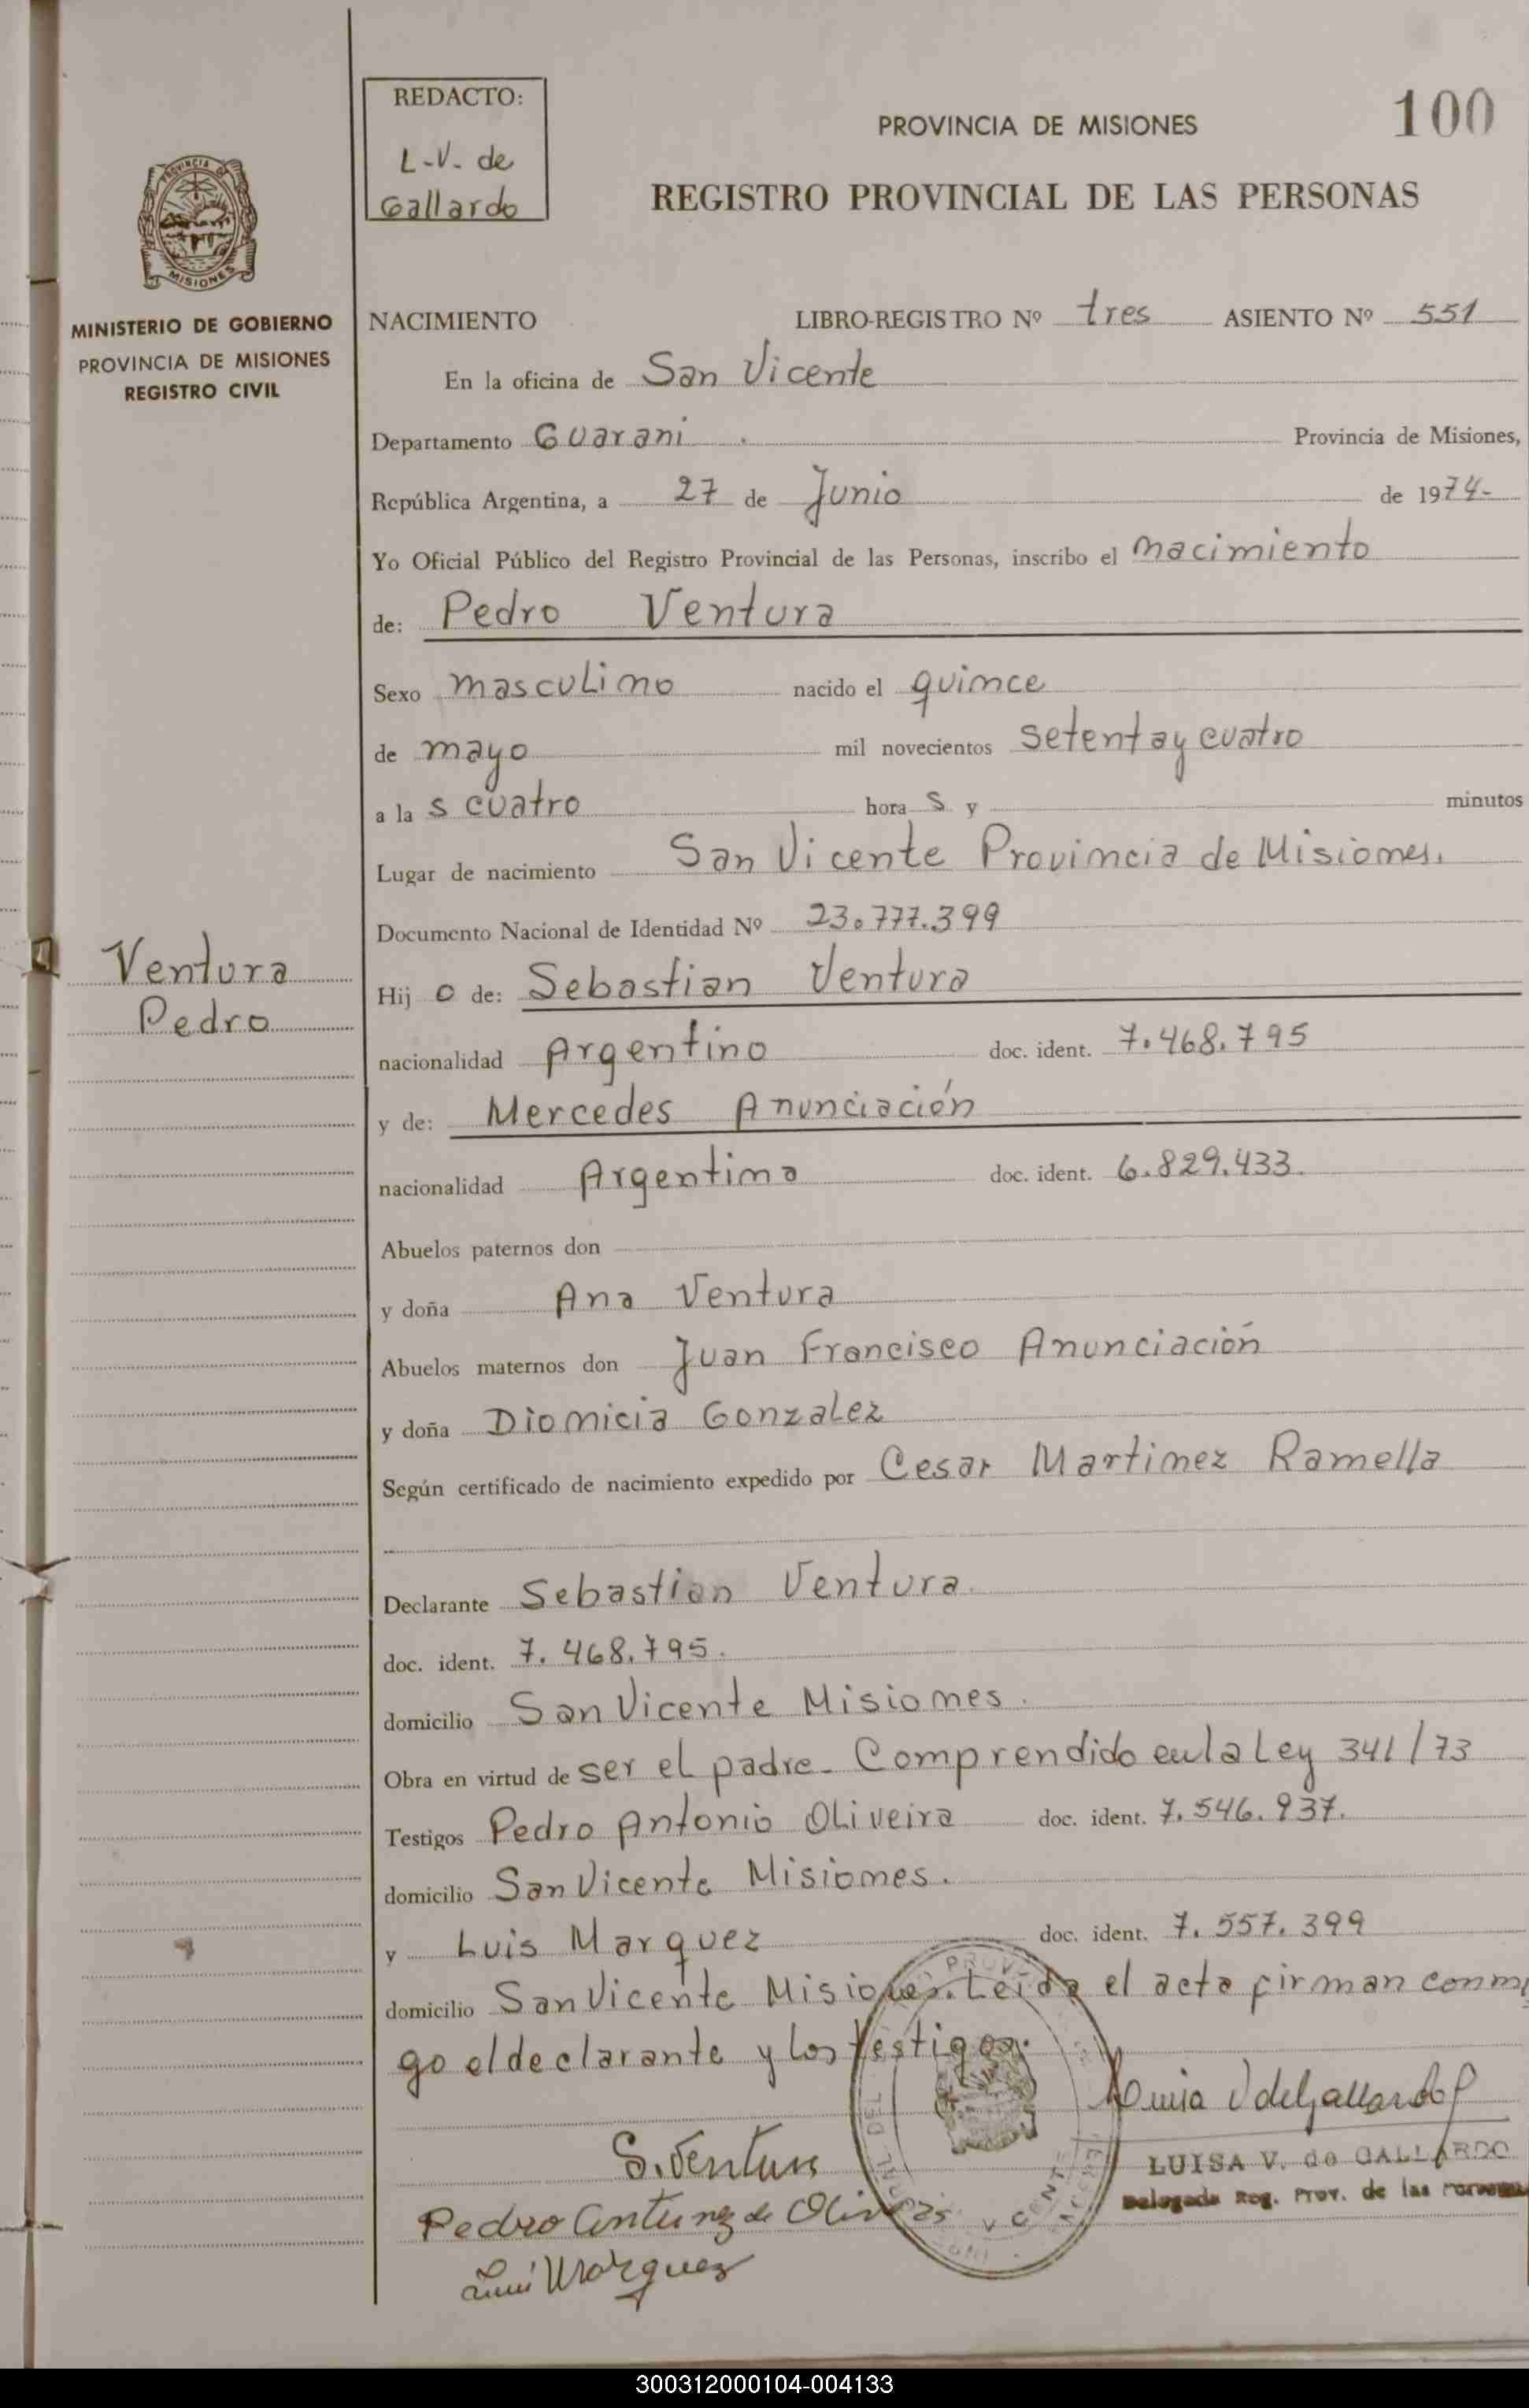 100
REDACTO:
L-V. de
Gallardo
PROVINCIA DE MISIONES
REGISTRO PROVINCIAL DE LAS PERSONAS
PROVINCIA DE
MISIONES
MINISTERIO DE GOBIERNO
PROVINCIA DE MISIONES
REGISTRO CIVIL
NACIMIENTO LIBRO-REGISTRO Nº tres ASIENTO Nº 551
En la oficina de San Vicente
Departamento Guarani . Provincia de Misiones,
República Argentina, a 27 de Junio de 1974-
Yo Oficial Público del Registro Provincial de las Personas, inscribo el nacimiento
de: Pedro Ventura
Sexo masculino nacido el quince
de mayo mil novecientos setenta y cuatro
a la s cuatro hora s y minutos
Lugar de nacimiento San Vicente Provincia de Misiones.
Documento Nacional de Identidad Nº 23.777.399
Ventura
Pedro
Hij o de: Sebastian Ventura
nacionalidad Argentino doc. ident. 7.468.795
y de: Mercedes Anunciación
nacionalidad Argentina doc. ident. 6.829.433.
Abuelos paternos don
y doña Ana Ventura
Abuelos maternos don Juan Francisco Anunciación
y doña Dionicia Gonzalez
Según certificado de nacimiento expedido por Cesar Martinez Ramella
Declarante Sebastian Ventura.
doc. ident. 7.468.795.
domicilio San Vicente Misiones.
Obra en virtud de ser el padre. Comprendido en la Ley 341/73
Testigos Pedro Antonio Oliveira doc. ident. 7.546.937.
domicilio San Vicente Misiones.
y Luis Marquez doc. ident. 7.557.399
domicilio San Vicente Misiones. Leida el acta firman conmi
go el declarante y los testigos.
S. Ventura
Luisa V de Gallardo
LUISA V. de GALLARDO
Delegada Reg. Prov. de las Personas
Pedro Antunez de Oliveira
Luis Marquez
300312000104-004133